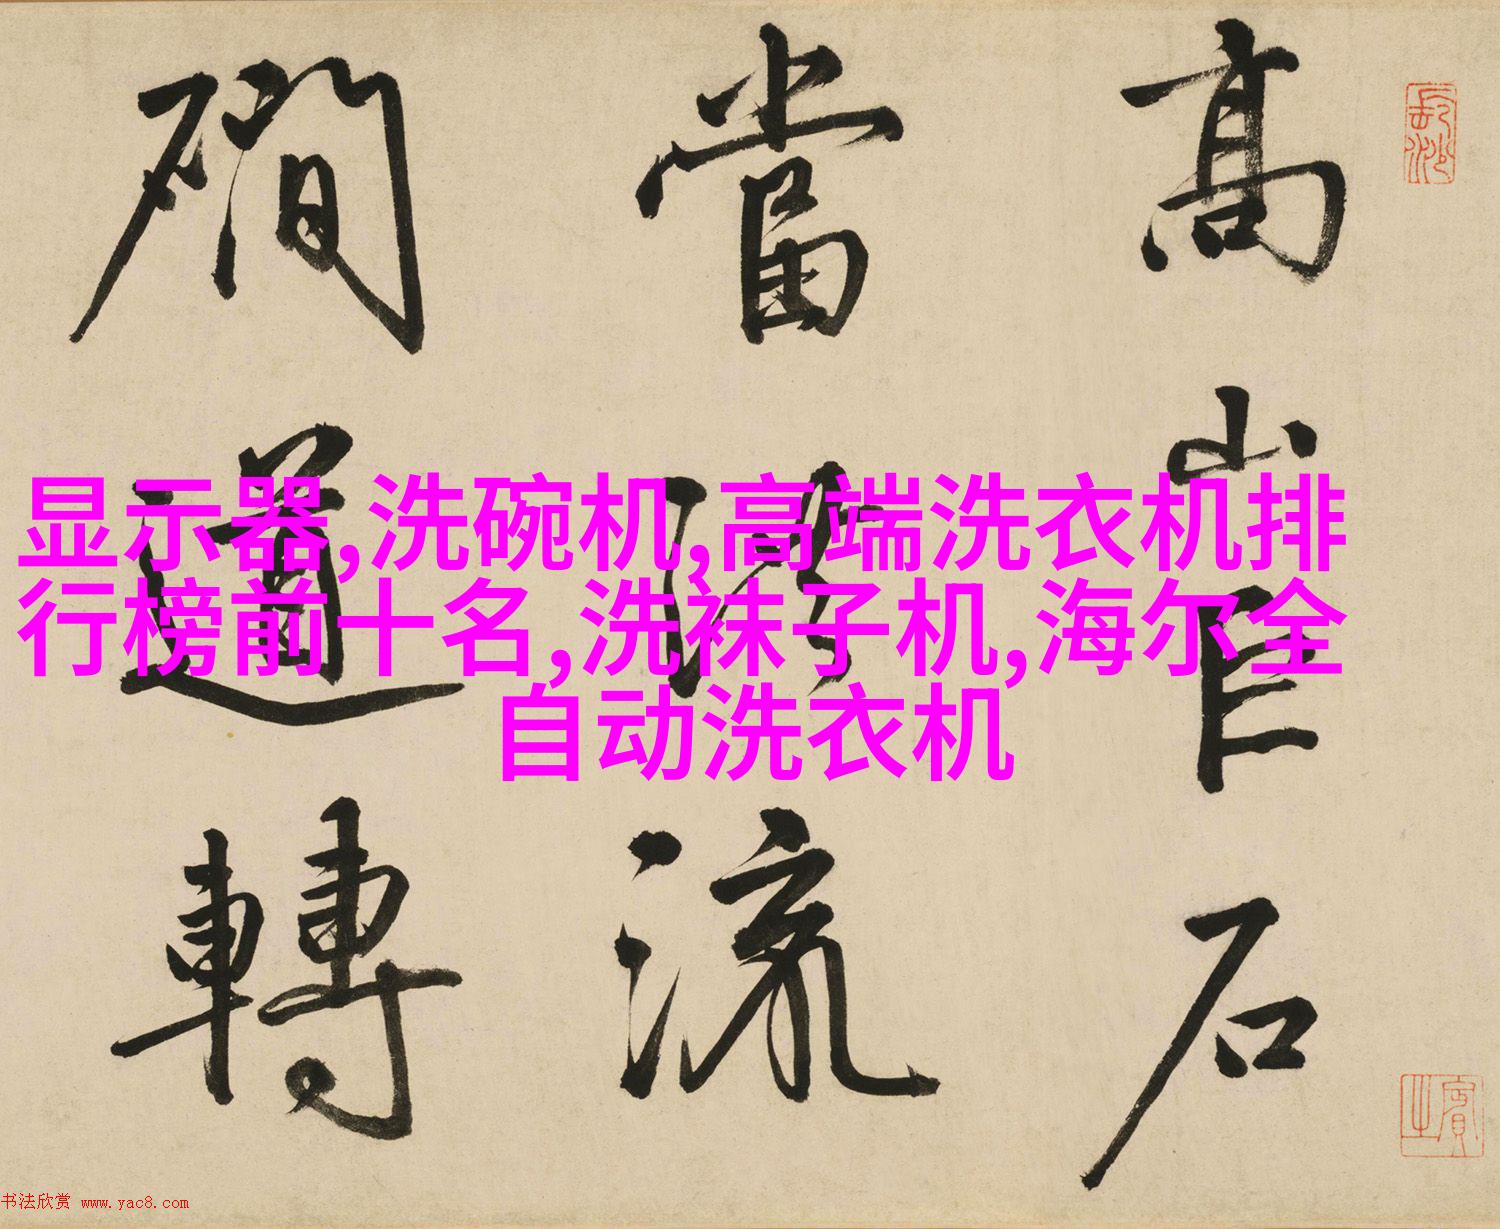 長沙
高山巨石
當流
磵道轉
賓之
显示器,洗碗机,高端洗衣机排
行榜前十名,洗袜子机,海尔全
自动洗衣机
书法欣赏 www.yac8.com